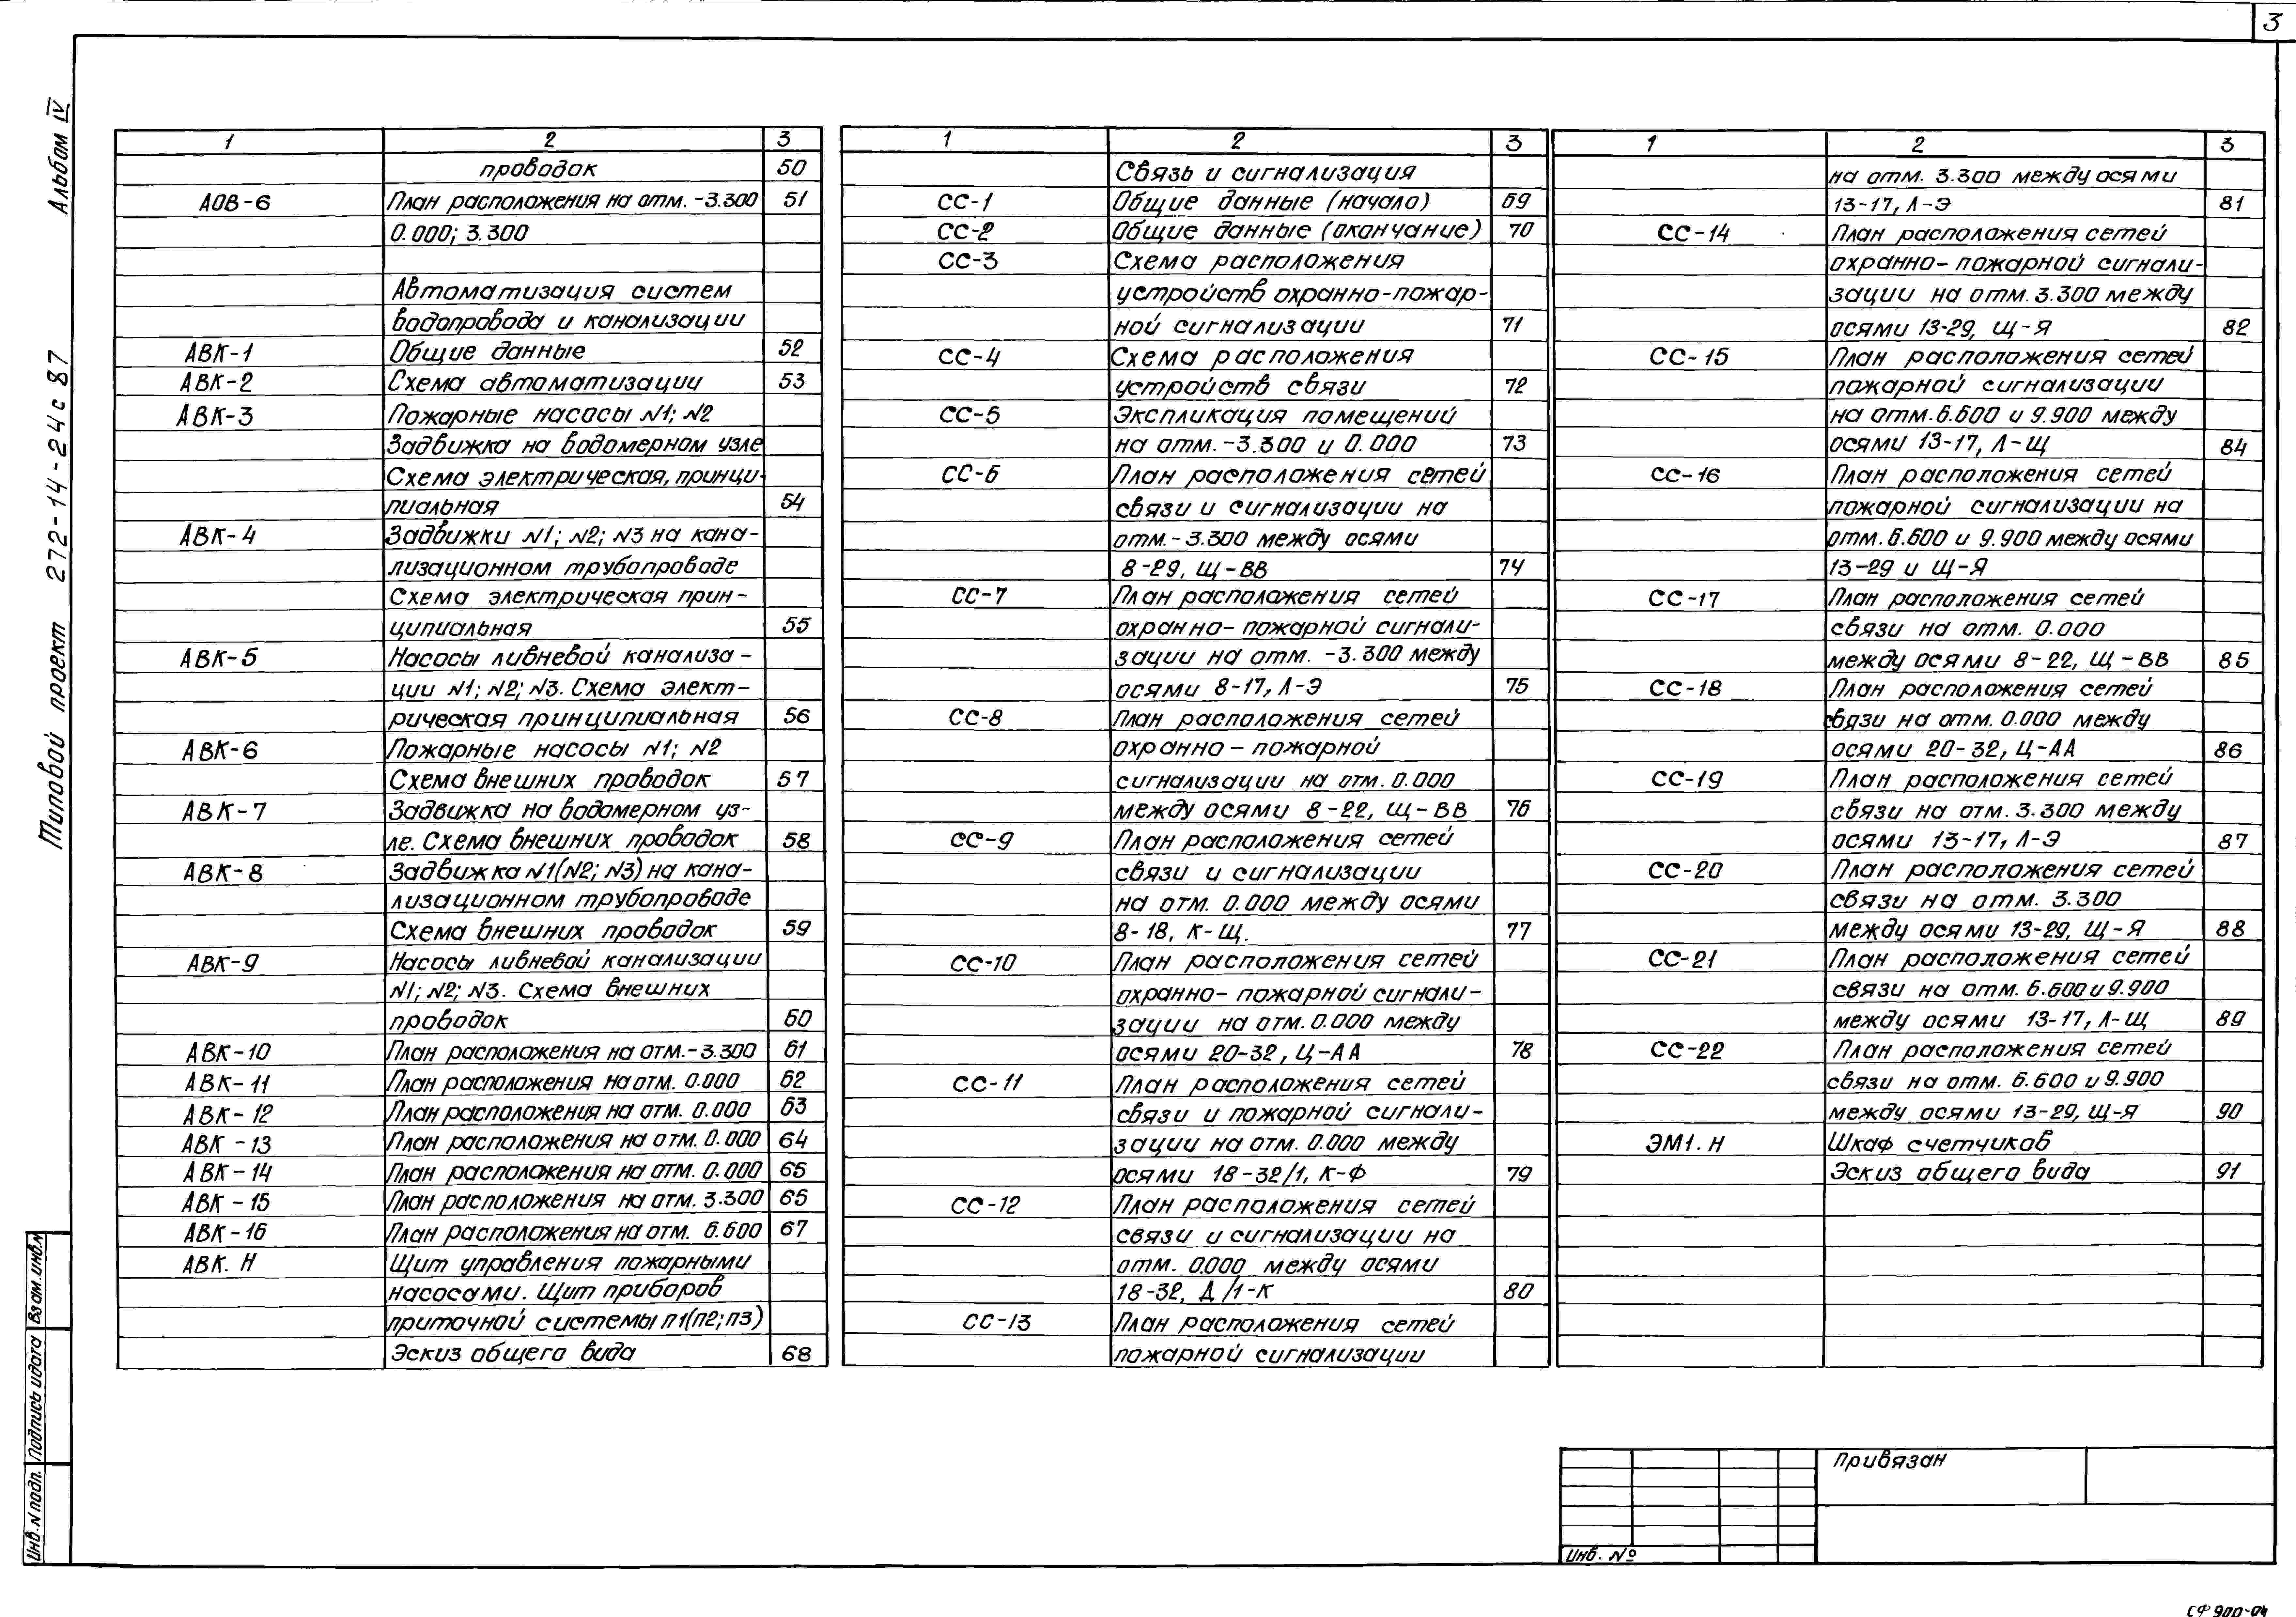 3
Альбом IV
Типовой проект 272-14-24с87
1 2 3
проводок 50
АОВ-6 План расположения на отм. -3.300 51
0.000; 3.300
Автоматизация систем
водопровода и канализации
АВК-1 Общие данные 52
АВК-2 Схема автоматизации 53
АВК-3 Пожарные насосы N1; N2
Задвижка на водомерном узле
Схема электрическая, принци-
пиальная 54
АВК-4 Задвижки N1; N2; N3 на кана-
лизационном трубопроводе
Схема электрическая прин-
ципиальная 55
АВК-5 Насосы ливневой канализа-
ции N1; N2; N3. Схема элект-
рическая принципиальная 56
АВК-6 Пожарные насосы N1; N2
Схема внешних проводок 57
АВК-7 Задвижка на водомерном уз-
ле. Схема внешних проводок 58
АВК-8 Задвижка N1(N2; N3) на кана-
лизационном трубопроводе
Схема внешних проводок 59
АВК-9 Насосы ливневой канализации
N1; N2; N3. Схема внешних
проводок 60
АВК-10 План расположения на отм. -3.300 61
АВК-11 План расположения на отм. 0.000 62
АВК-12 План расположения на отм. 0.000 63
АВК-13 План расположения на отм. 0.000 64
АВК-14 План расположения на отм. 0.000 65
АВК-15 План расположения на отм. 3.300 65
АВК-16 План расположения на отм. 6.600 67
АВК.Н Щит управления пожарными
насосами. Щит приборов
приточной системы П1(П2; П3)
Эскиз общего вида 68
1 2 3
Связь и сигнализация
СС-1 Общие данные (начало) 69
СС-2 Общие данные (окончание) 70
СС-3 Схема расположения
устройств охранно-пожар-
ной сигнализации 71
СС-4 Схема расположения
устройств связи 72
СС-5 Экспликация помещений
на отм. -3.300 и 0.000 73
СС-6 План расположения сетей
связи и сигнализации на
отм. -3.300 между осями
8-29, Щ-ВВ 74
СС-7 План расположения сетей
охранно-пожарной сигнали-
зации на отм. -3.300 между
осями 8-17, Л-Э 75
СС-8 План расположения сетей
охранно-пожарной
сигнализации на отм. 0.000
между осями 8-22, Щ-ВВ 76
СС-9 План расположения сетей
связи и сигнализации
на отм. 0.000 между осями
8-18, К-Щ. 77
СС-10 План расположения сетей
охранно-пожарной сигнали-
зации на отм. 0.000 между
осями 20-32, Ц-АА 78
СС-11 План расположения сетей
связи и пожарной сигнали-
зации на отм. 0.000 между
осями 18-32/1, К-Ф 79
СС-12 План расположения сетей
связи и сигнализации на
отм. 0.000 между осями
18-32, Д/1-К 80
СС-13 План расположения сетей
пожарной сигнализации
1 2 3
на отм. 3.300 между осями
13-17, Л-Э 81
СС-14 План расположения сетей
охранно-пожарной сигнали-
зации на отм. 3.300 между
осями 13-29, Щ-Я 82
СС-15 План расположения сетей
пожарной сигнализации
на отм. 6.600 и 9.900 между
осями 13-17, Л-Щ 84
СС-16 План расположения сетей
пожарной сигнализации на
отм. 6.600 и 9.900 между осями
13-29 и Щ-Я
СС-17 План расположения сетей
связи на отм. 0.000
между осями 8-22, Щ-ВВ 85
СС-18 План расположения сетей
связи на отм. 0.000 между
осями 20-32, Ц-АА 86
СС-19 План расположения сетей
связи на отм. 3.300 между
осями 13-17, Л-Э 87
СС-20 План расположения сетей
связи на отм. 3.300
между осями 13-29, Щ-Я 88
СС-21 План расположения сетей
связи на отм. 6.600 и 9.900
между осями 13-17, Л-Щ 89
СС-22 План расположения сетей
связи на отм. 6.600 и 9.900
между осями 13-29, Щ-Я 90
ЭМ1.Н Шкаф счетчиков
Эскиз общего вида 91
Взам. инв. N
Подпись и дата
Инв. N подл.
Привязан
Инв. №
СФ 900-04